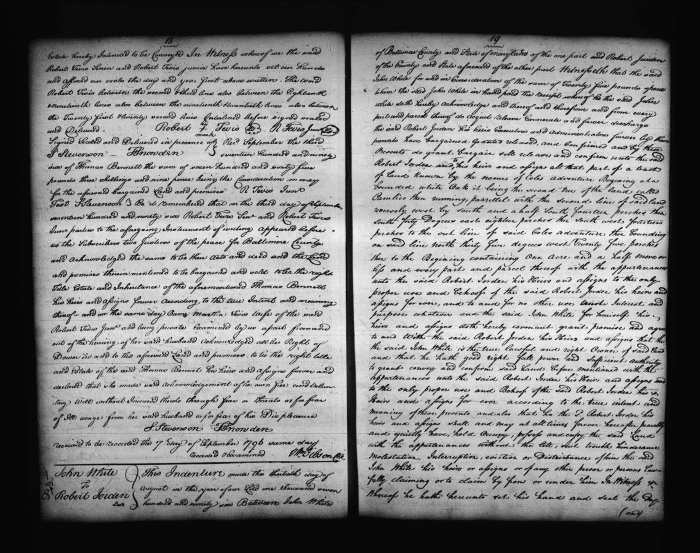 18
Estate hereby Intended to be Conveyed In Witness whereof we the said
Robert Tevis Senr and Robert Tevis junior have hereunto set our Hands
and affixed our seals the day and year first above written. The word
Robert Tevis between the second & third also between the Eighteenth
nineteenth lines also between the nineteenth & twentieth lines also between
the Twenty first & twenty second lines Enterlined before signed sealed
and Delivered. Robert T Tevis R Tevis Junr
Signed Sealed and Delivered in presence of Recd September the third
J Stevenson Snowden seventeen hundred and ninety
six of Thomas Bennett the sum of seven hundred and sixty five
pounds three shillings and nine pence being the Consideration money
for the aforesaid bargained Land and premises R Tevis Junr
Test J Stevenson Be it remembered that on the third day of September
seventeen hundred and ninety six Robert Tevis Senr and Robert Tevis
Junr parties to the aforegoing Instrument of writing appeared before
us the Subscribers two Justices of the peace for Baltimore County
and Acknowledged the same to be their act and deed and the Land
and premises therein mentioned to be bargained and sold to be the right
Title Estate and Inheritance of the aforementioned Thomas Bennett
his Heirs and assigns forever According to the true Intent and meaning
thereof and on the same day Came Martha Tevis wife of the said
Robert Tevis Junr and being privately Examined by us apart from and
out of the hearing of her said husband Acknowledged all her Right of
Dower in and to the aforesaid Land and premises to be the right title
and Estate of the said Thomas Bennett his Heirs and assigns forever and
declared that she made said acknowledgement of her own free and volun
tary Will without Induced thereto through fear or threats or for fear
of Ill usage from her said husband or for fear of his Displeasure
J Stevenson Snowden
received to be recorded the 7 day of September 1796 same day
recorded & examined Wm Gibson Clk
John White
To
Robert Jorden
This Indenture made this thirtieth day of
August in the year of our Lord one thousand seven
hundred and ninety six Between John White
19
of Baltimore County and State of Maryland of the one part and Robert Jorden
of the County and State aforesaid of the other part Witnesseth that the said
John White for and in Consideration of the sum of Twenty five pounds
whom the said John White in hand paid the receipt whereof he the said John
White doth hereby acknowledge and thereof and therefrom and from every
part and parcel thereof do acquit release Exonerate and forever discharge
the said Robert Jorden his heirs Executors and Administrators forever by these
presents have bargained & sold released and confirmed and by these
Presents do grant bargain sell release and confirm unto the said
Robert Jorden his heirs and assigns all that part of a tract
of Land known by the name of Coles adventure Beginning at a
bounded white Oak it being the second tree of the land called
then running parallel with the second line of said land
westerly west by south and a half South fourteen perches then
south forty Degrees east eighteen perches then north sixty fourteen
perches to the out line of said Coles Adventure then bounding
on said line north thirty five degrees west Twenty five perches
then to the Beginning containing One Acre and a half more or
less and every part and parcel thereof with the appurtenances
unto the said Robert Jorden his Heirs and assigns to the only
proper use and behoof of the said Robert Jorden his Heirs and
assigns for ever, and to and for no other use Intent Interest and
purpose whatsoever and the said John White for himself his
heirs and assigns doth hereby covenant grant promise and agree
to and with the said Robert Jorden his Heirs and assigns that he
the said John White is the true Lawful and right Owner of said land
and that he hath good right full power and Sufficient authority
to grant convey and confirm said Land before mentioned with the
appurtenances unto the said Robert Jorden his Heirs and assigns and
to the only proper use and behoof of the said Robert Jorden his
Heirs and assigns for ever according to the true intent and
meaning of these presents and also that he the Sd Robert Jorden his
heirs and assigns shall and may at all times forever hereafter peaceably
and quietly have hold Occupy possess and enjoy the said Land
with the appurtenances without the let, suit, trouble hindrance
Molestation Interruption, eviction or Disturbance of him the said
John White his heirs or assigns or of any other person or persons Law
fully claiming or to claim by from or under him In Witness
whereof he hath hereunto set his hand and seal the Day